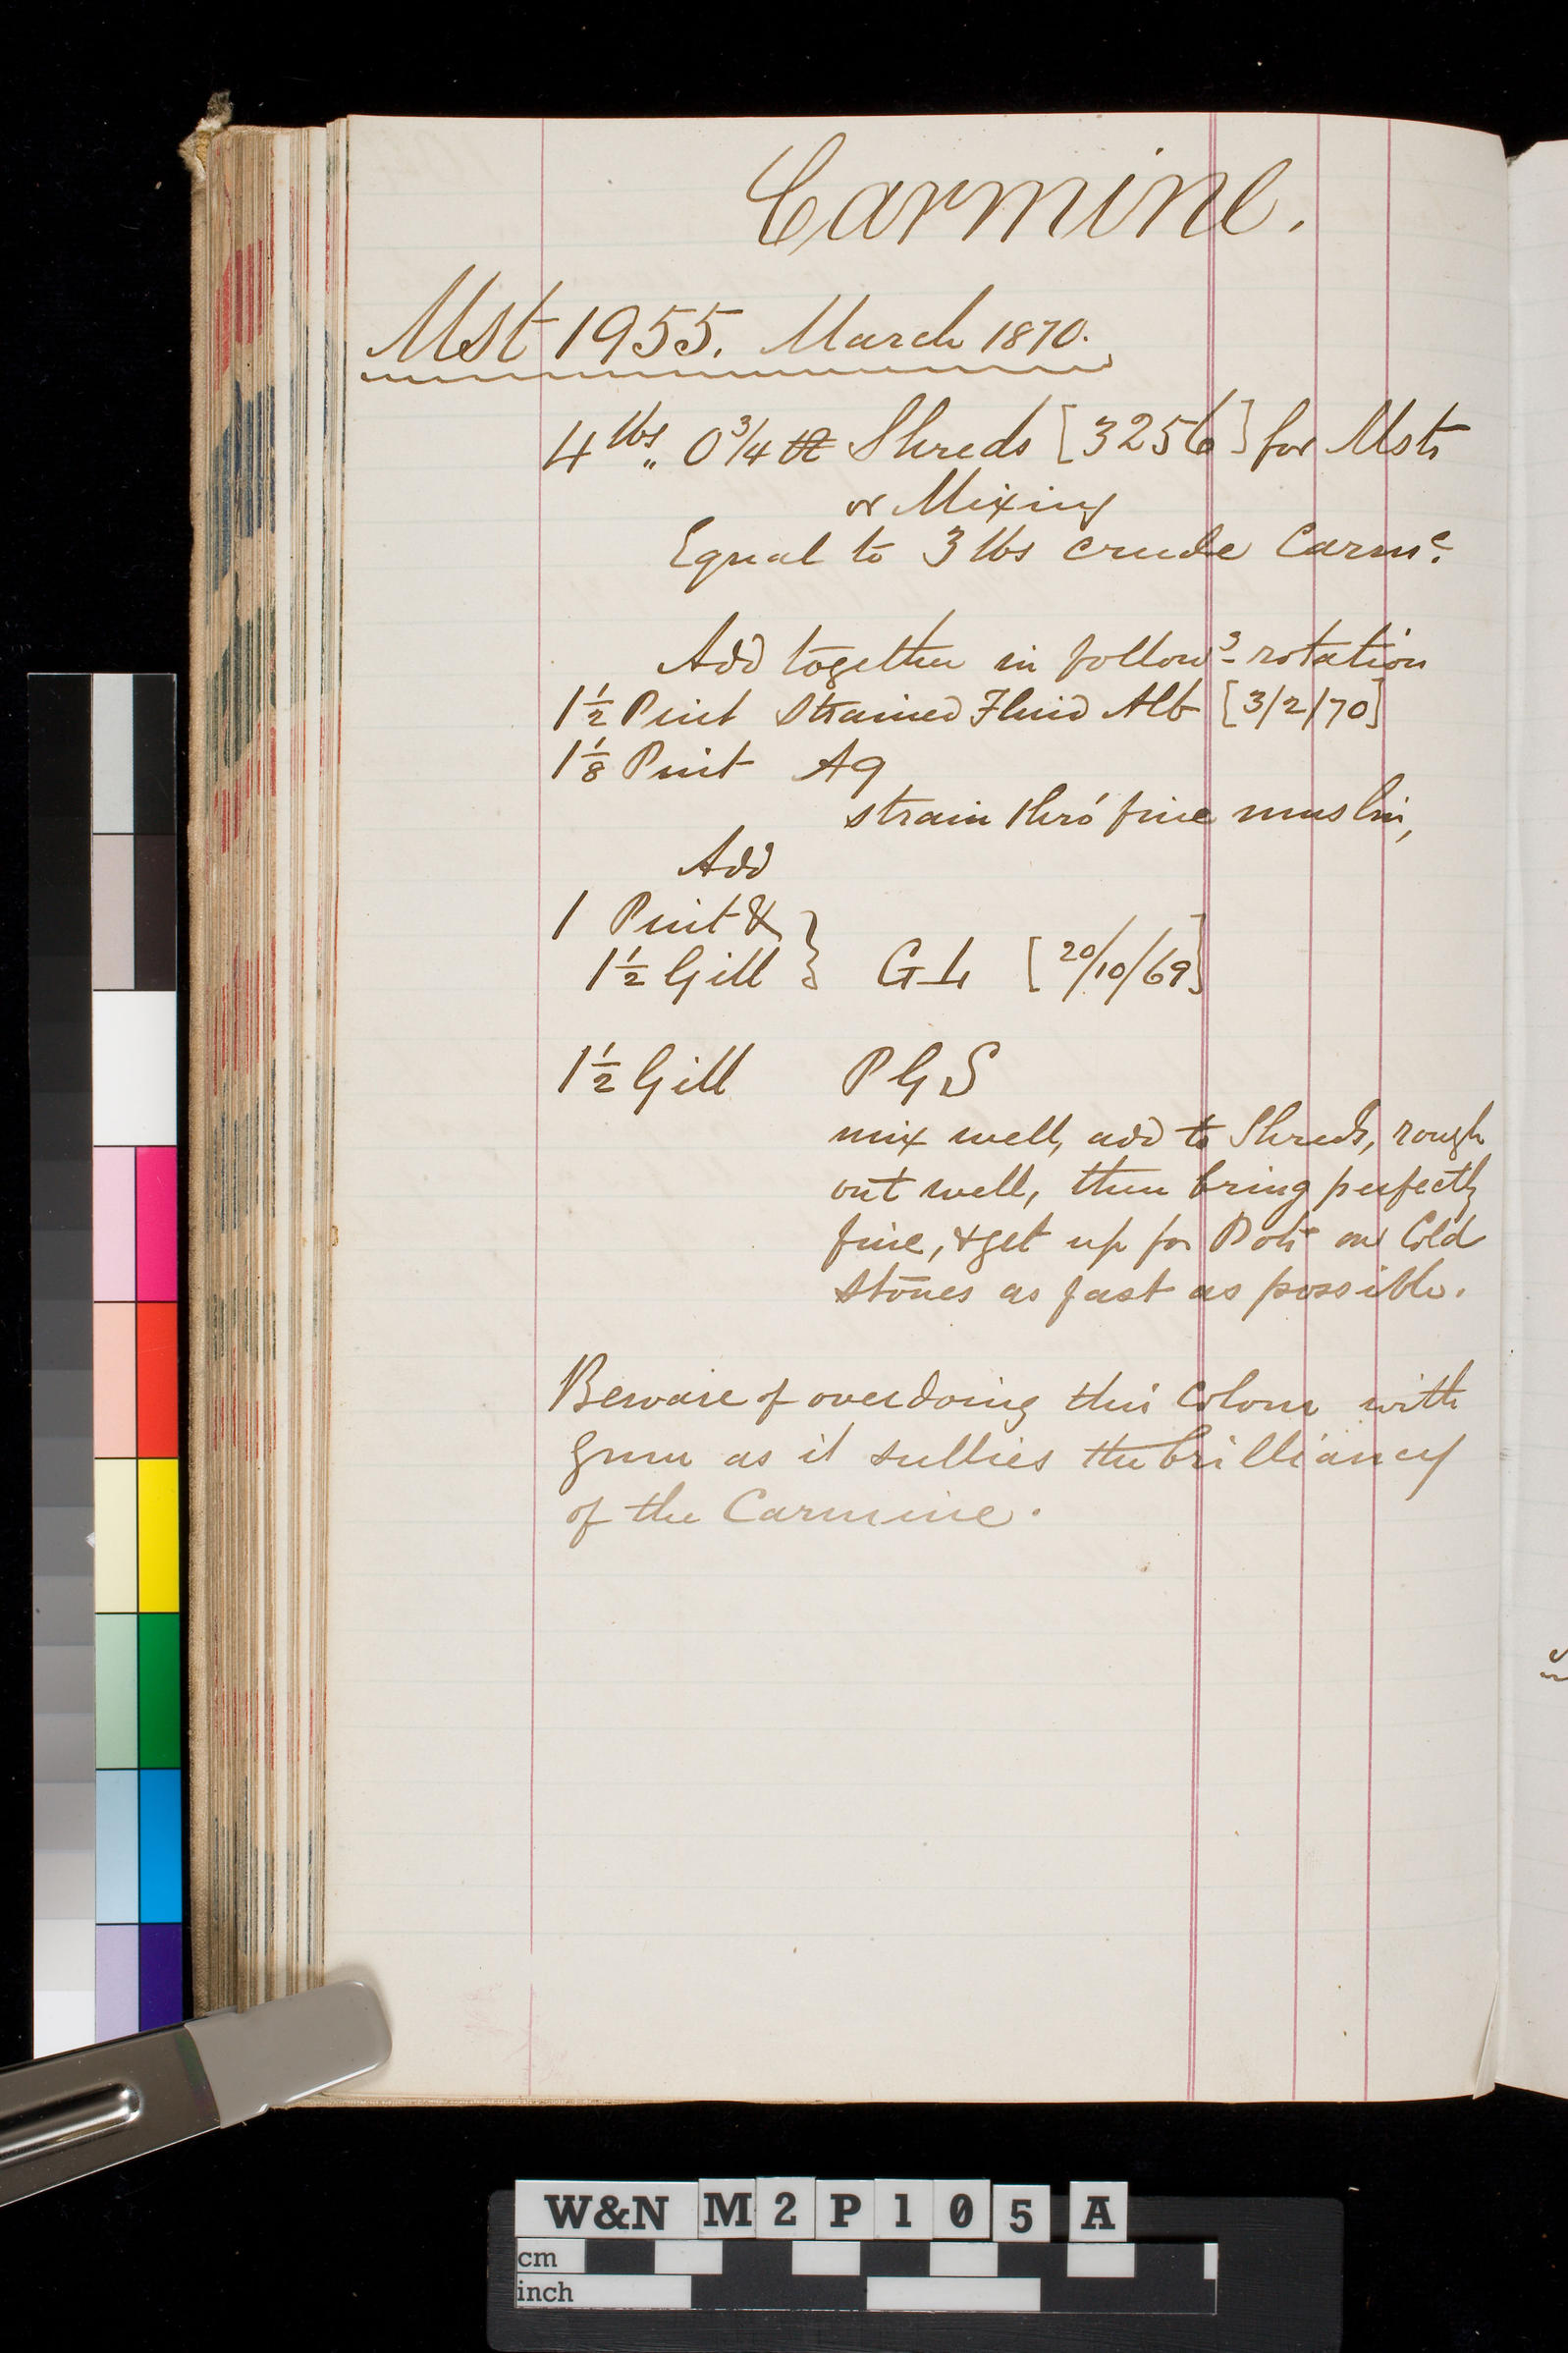 Carmine.
Mst 1955. March 1870.
4 lbs „ 0 3/4 Shreds [3256] for Msts
or Mixing
Equal to 3 lbs crude Carmc.
Add together in followg rotation
1 1/2 Pint Strained Fluid Alb [3/2/70]
1 1/8 Pint Aq
strain thro' fine muslin,
Add
1 Pint &
1 1/2 Gill } G [20/10/69]
1 1/2 Gill P G S
mix well, add to Shreds, rough
out well, then bring perfectly
fine, & get up for Pots on Cold
Stones as fast as possible.
Beware of overdoing this Colour with
Gum as it sullies the brilliancy
of the Carmine.
W&N M2P105 A
cm
inch